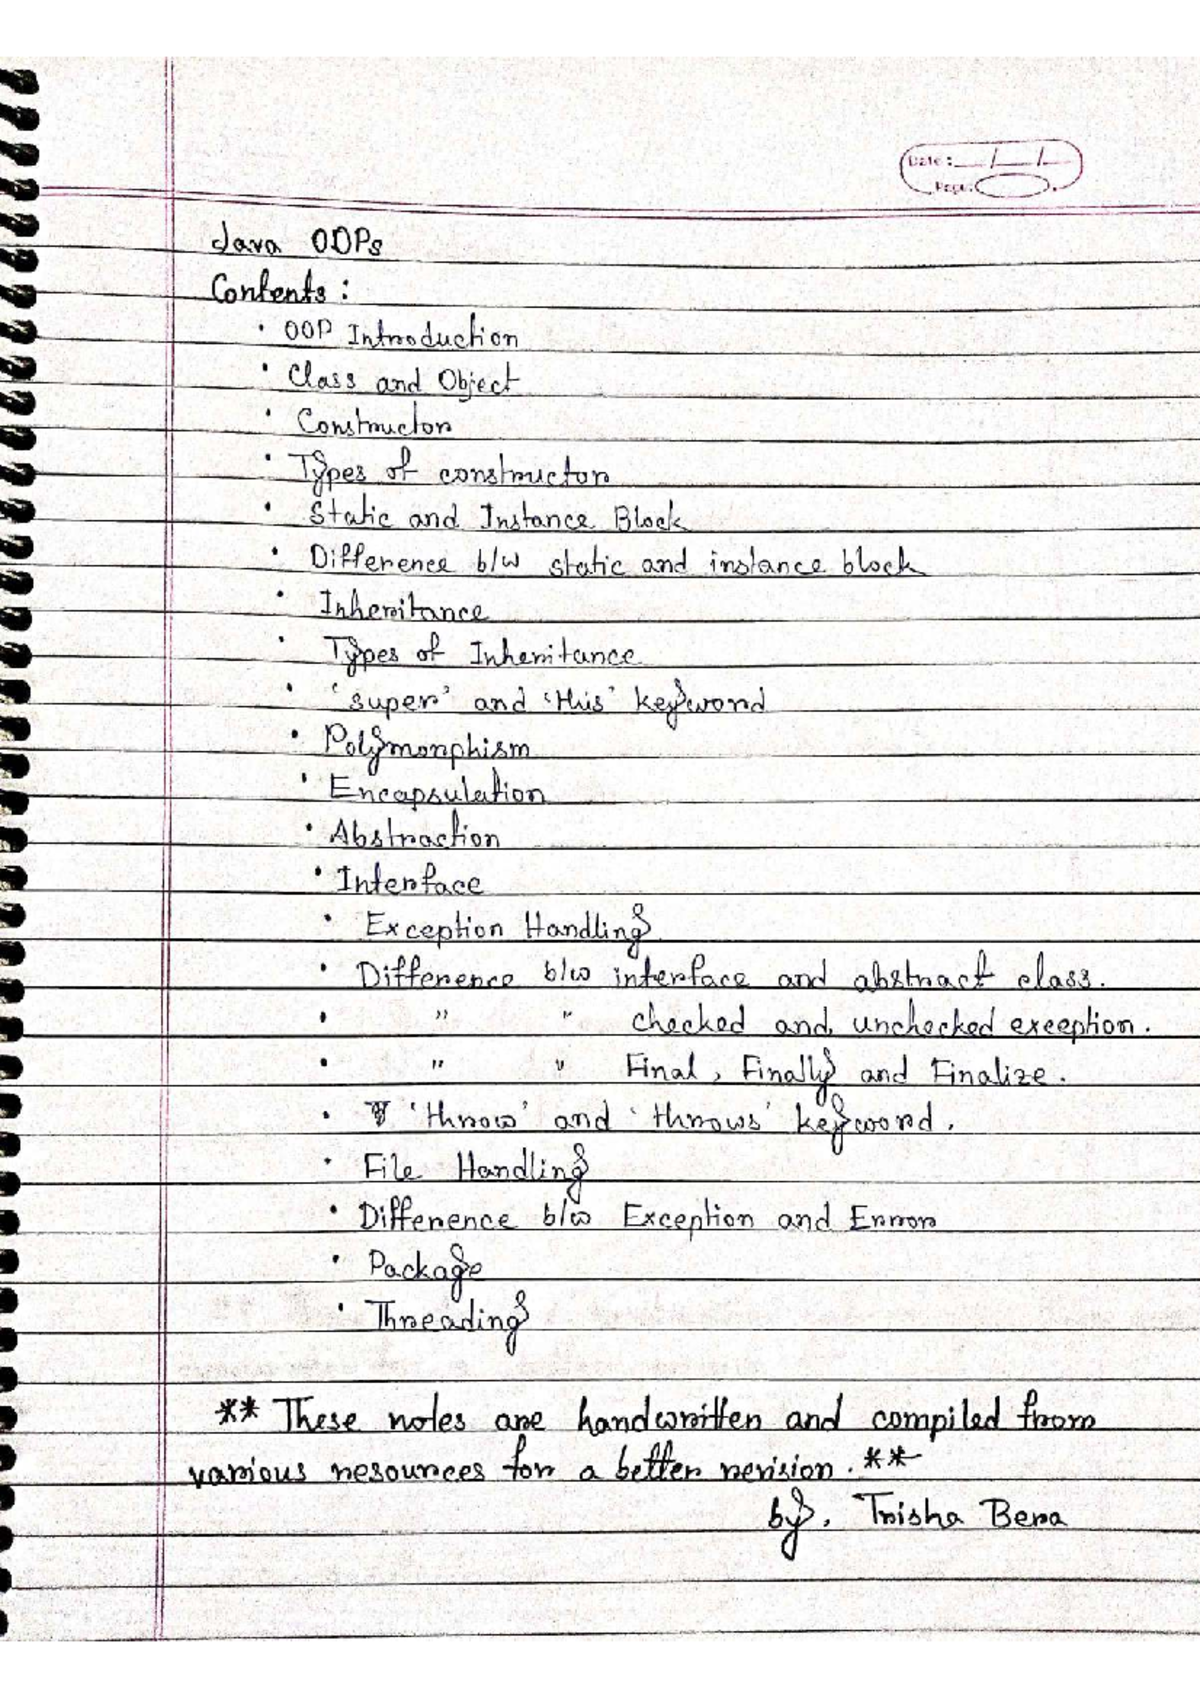 Date: __/__/__
Page:
Java OOPs
Contents :
• OOP Introduction
• Class and Object
• Constructor
• Types of constructor
• Static and Instance Block
• Difference b/w static and instance block
• Inheritance
• Types of Inheritance
• 'super' and 'this' keyword
• Polymorphism
• Encapsulation
• Abstraction
• Interface
• Exception Handling
• Difference b/w interface and abstract class.
• " " checked and unchecked exception.
• " " Final, Finally and Finalize.
• 'throw' and 'throws' keyword.
• File Handling
• Difference b/w Exception and Error
• Package
• Threading
** These notes are handwritten and compiled from
various resources for a better revision. **
by, Trisha Bera